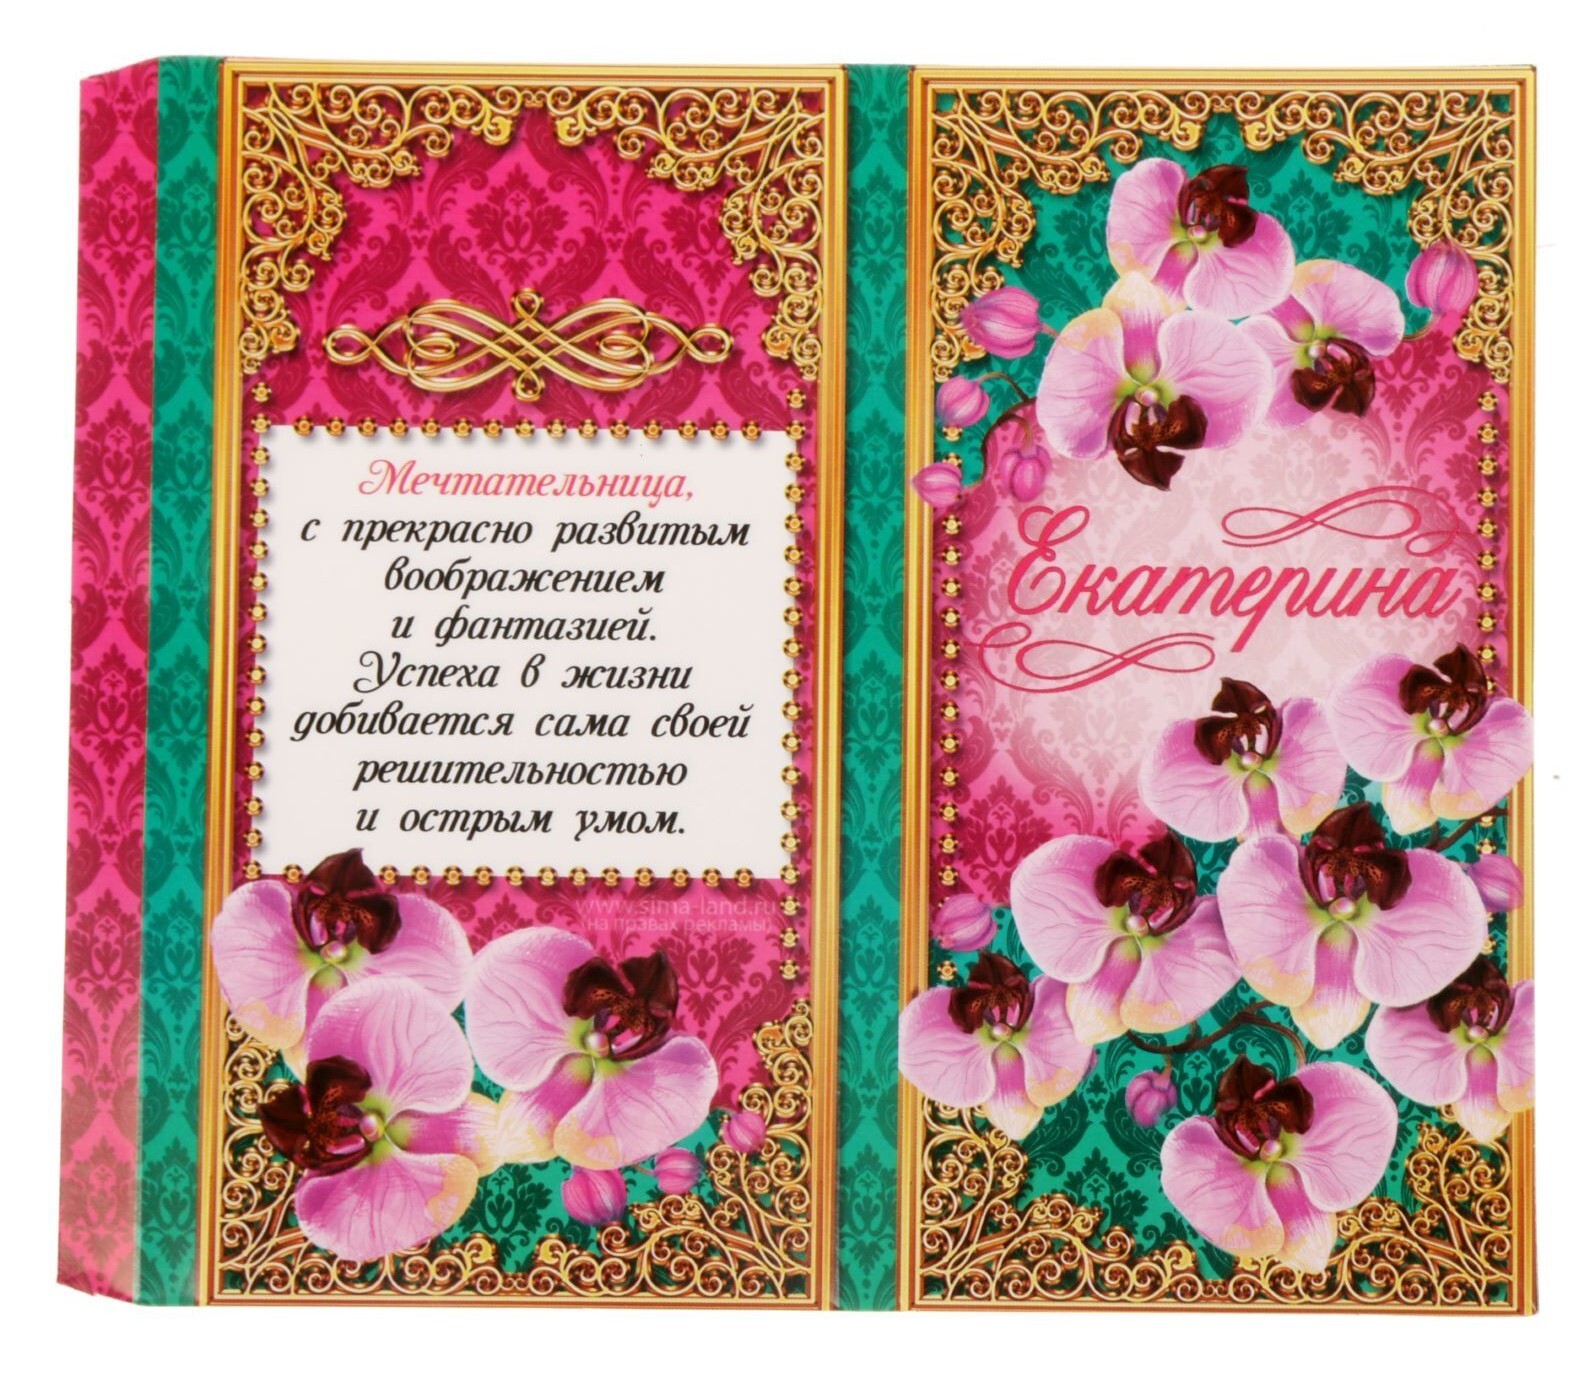 Мечтательница,
с прекрасно развитым
воображением
и фантазией.
Успеха в жизни
добивается сама своей
решительностью
и острым умом.
www.sima-land.ru
(на правах рекламы)
Екатерина